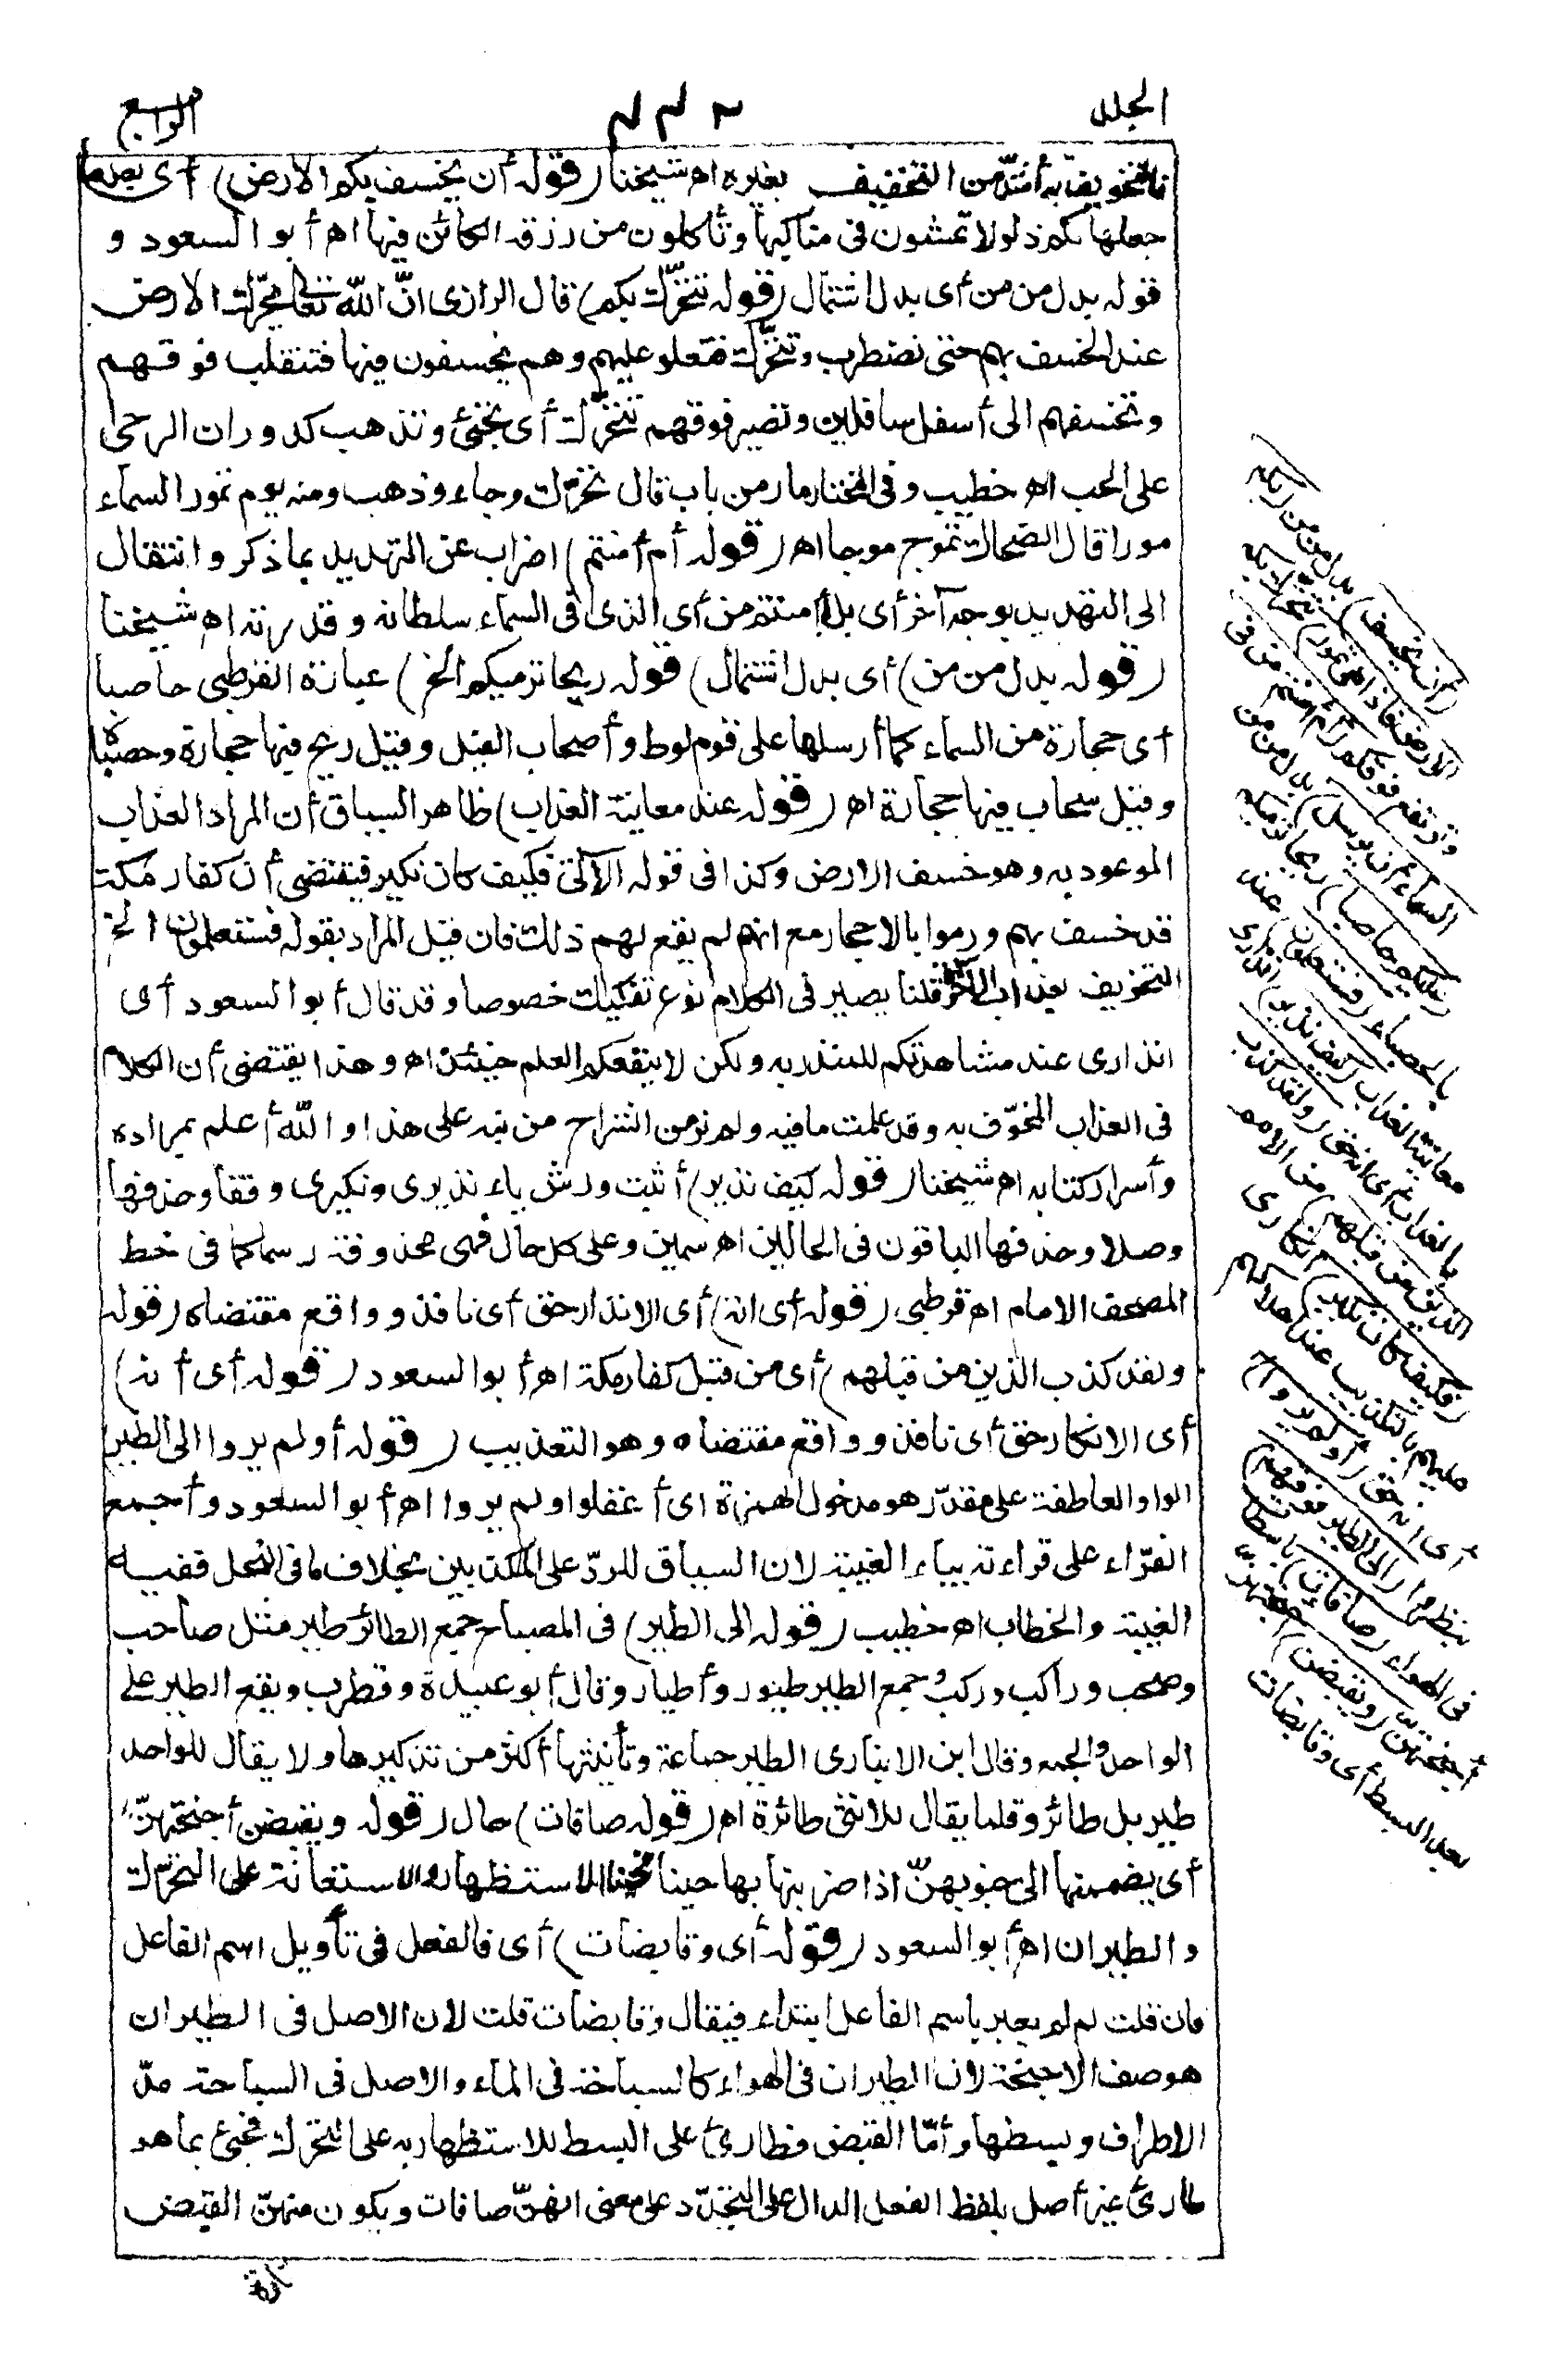 الجلد
٤٣٢
الرابع
فالتخويف به أشدّ من التخفيف بغيره اه شيخنا (قوله أن يخسف بكم الارض) أى بعد ما
جعلها لكم ذلولا تمشون فى مناكبها وتأكلون من رزقه الكائن فيها اه أبو السعود و
قوله بدل من من أى بدل اشتمال (قوله تتحرّك بكم) قال الرازى انّ الله تعالى يحرّك الارض
عند الخسف بهم حتى تضطرب وتتحرّك فتعلو عليهم وهم يخسفون فيها فتنقلب فوقهم
وتخسفهم الى أسفل سافلين وتصير فوقهم تتحرّك أى تجىء وتذهب كدوران الرحى
على الحب اه خطيب وفى المختار مار من باب قال تحرّك وجاء وذهب ومنه يوم تمور السماء
مورا قال الضحاك تموج موجا اه (قوله أم أمنتم) اضراب عن التهديد بما ذكر وانتقال
الى التهديد بوجه آخر أى بل أمنتم من أى الذى فى السماء سلطانه وقدرته اه شيخنا
(قوله بدل من من) أى بدل اشتمال (قوله ريحا ترميكم الخ) عبارة القرطبى حاصبا
أى حجارة من السماء كما أرسلها على قوم لوط وأصحاب الفيل وقيل ريح فيها حجارة وحصباء
وقيل سحاب فيها حجارة اه (قوله عند معاينة العذاب) ظاهر السياق أن المراد العذاب
الموعود به وهو خسف الارض وكذا فى قوله الآتى فكيف كان نكير فيقتضى أن كفار مكة
قد خسف بهم ورموا بالاحجار مع انهم لم يقع لهم ذلك فان قيل المراد بقوله فستعلمون الخ
التخويف بعذاب الآخرة قلنا يصير فى الكلام نوع تفكيك خصوصا وقد قال أبو السعود أى
انذارى عند مشاهدتكم للمنذر به ولكن لا ينفعكم العلم حينئذ اه وهذا يقتضى أن الكلام
فى العذاب المخوّف به وقد علمت ما فيه ولم نر من الشراح من نبه على هذا والله أعلم بمراده
وأسرار كتابه اه شيخنا (قوله كيف نذير) أثبت ورش ياء نذيرى ونكيرى وقفا وحذفها
وصلا وحذفها الباقون فى الحالين اه سمين وعلى كل حال فهى محذوفة رسما كما فى خط
المصحف الامام اه قرطبى (قوله أى انه) أى الانذار حق أى نافذ وواقع مقتضاه (قوله
ولقد كذب الذين من قبلهم) أى من قبل كفار مكة اه أبو السعود (قوله أى أنه)
أى الانكار حق أى نافذ وواقع مقتضاه وهو التعذيب (قوله أولم يروا الى الطير
الواو العاطفة على مقدّر هو مدخول الهمزة أى أغفلوا ولم يروا اه أبو السعود وأجمع
القرّاء على قراءته بياء الغيبة لان السياق للردّ على المكذبين بخلاف ما فى النحل ففيه
الغيبة والخطاب اه خطيب (قوله الى الطير) فى المصباح جمع الطائر طير مثل صاحب
وصحب وراكب وركب وجمع الطير طيور وأطيار وقال أبو عبيدة وقطرب ويقع الطير على
الواحد والجمع وقال ابن الانبارى الطير جماعة وتأنيثها أكثر من تذكيرها ولا يقال للواحد
طير بل طائر وقلما يقال للانثى طائرة اه (قوله صافات) حال (قوله ويقبضن أجنحتهنّ
أى يضممنها الى جنوبهنّ اذا ضربنها بها حينا فحينا للاستظهار والاستعانة على التحرّك
والطيران اه أبو السعود (قوله أى وقابضات) أى فالفعل فى تأويل اسم الفاعل
فان قلت لم لم يعبر باسم الفاعل ابتداء فيقال وقابضات قلت لان الاصل فى الطيران
هو صف الاجنحة لان الطيران فى الهواء كالسباحة فى الماء والاصل فى السباحة مدّ
الاطراف وبسطها وأمّا القبض فطارئ على البسط للاستظهار به على التحرك فجىء بما هو
طارئ غير أصل بلفظ الفعل الدال على التجدّد على معنى انهنّ صافات ويكون منهنّ القبض
تارة
(أن يخسف) بدل من من (بكم
الارض فاذا هى تمور) تتحرّك بكم
وترتفع فوقكم (أم أمنتم من فى
السماء أن يرسل) بدل من من
(عليكم حاصبا) ريحا ترميكم
بالحصباء (فستعلمون) عند
معاينة العذاب (كيف نذير) انذارى
بالعذاب أى انه حق (ولقد كذب
الذين من قبلهم) من الامم
(فكيف كان نكير) انكارى
عليهم بالتكذيب عند اهلاكهم
أى انه حق (أولم يروا)
ينظروا (الى الطير فوقهم)
فى الهواء (صافات) باسطات
أجنحتهنّ (ويقبضن) أجنحتهنّ
بعد البسط أى وقابضات